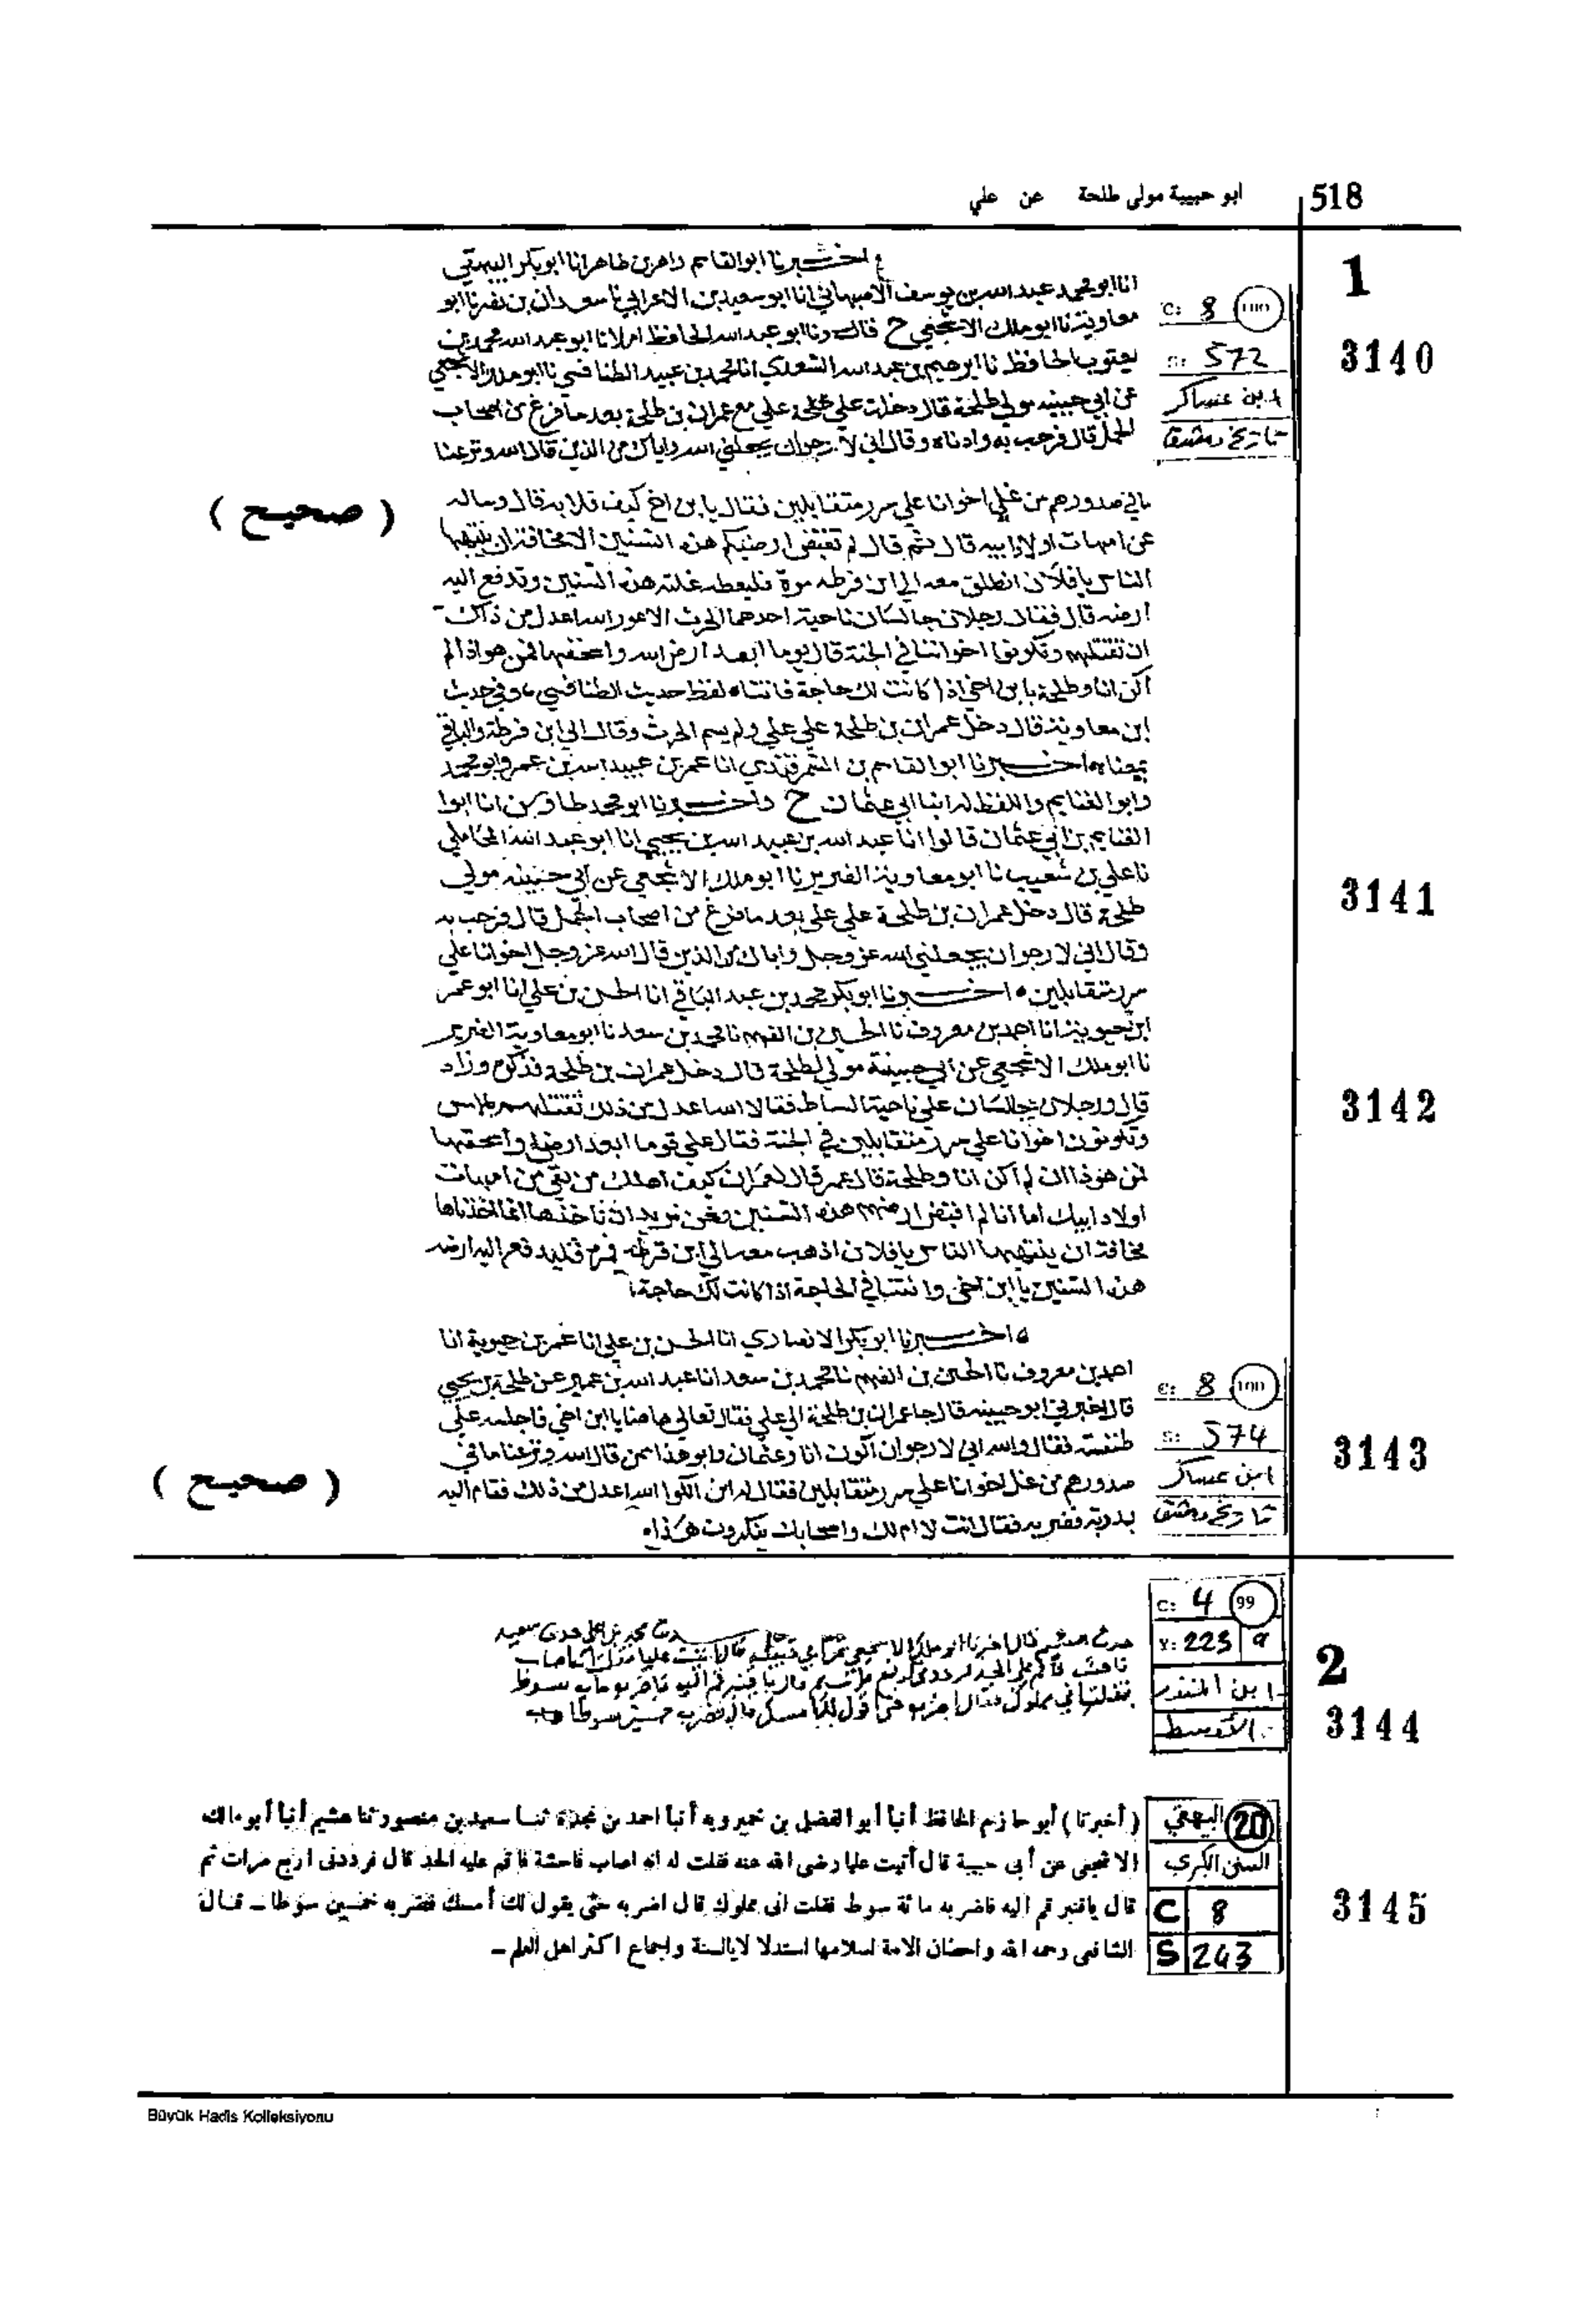 518
ابو حبيبة مولى طلحة عن علي
1
اخبرنا ابوالقاسم زاهر بن طاهر انا ابوبكر البيهقي
انا ابو محمد عبد الله بن يوسف الاصبهاني انا ابو سعيد بن الاعرابي نا سعدان بن نصر نا ابو
معاوية نا ابو ملك الاشجعي ح قال ونا ابو عبد الله الحافظ املانا ابو عبد الله محمد بن
يعقوب الحافظ نا ابرهيم بن عبد الله السعدي انا محمد بن عبيد الطنافسي نا ابو ملك الاشجعي
عن ابي حبيبه مولى طلحة قال دخلت على علي مع عمران بن طلحة بعد ما فرغ من اصحاب
الجمل قال فرحب به وادناه وقال اني لارجو ان يجعلني الله واباك من الذين قال الله ونزعنا
C: 8 100
S: 572
ابن عساكر
تاريخ دمشق
3140
ما في صدورهم من غل اخوانا على سرر متقابلين فقال يا بن اخ كيف فلانه قال وساله
عن امهات اولاد ابيه قال ثم قال لم نقبض ارضيكم هذه السنين الا مخافة ان ينتهبها
الناس يا فلان انطلق معه الى ابن قرظه مره فليعطه غلته هذه السنين وتدفع اليه
ارضه قال فقال رجلان جالسان ناحية احدهما الحرث الاعور الله اعدل من ذاك
ان تقتلهم وتكونوا اخواننا في الجنة قال قوما ابعد ارض الله واسحقها فمن هو اذا لم
اكن انا وطلحة يا بن اخي اذا كانت لك حاجة فاتنا لفظ حديث الطنافسي وفي حديث
ابن معاوية قال دخل عمران بن طلحة على علي ولم يسم الحرث وقال الى ابن قرظة والباقي
بمعناه اخبرنا ابو القاسم بن السمرقندي انا عمر بن عبيد الله بن عمر وابو محمد
وابو الغنايم واللفظ له ابنا ابي عثمان ح واخبرنا ابو محمد طاوس انا ابوا
الغنايم بن ابي عثمان قالوا انا عبد الله بن عبيد الله بن يحيى انا ابو عبد الله المحاملي
نا علي بن شعيب نا ابو معاوية الضرير نا ابو ملك الاشجعي عن ابي حبيبه مولى
طلحة قال دخل عمران بن طلحة على علي بعد ما فرغ من اصحاب الجمل قال فرحب به
وقال اني لارجو ان يجعلني الله عز وجل واباك من الذين قال الله عز وجل اخوانا على
سرر متقابلين ه اخبرنا ابو بكر محمد بن عبد الباقي انا الحسن بن علي انا ابو عمر
ابن حيوية انا احمد بن معروف نا الحسين بن الفهم نا محمد بن سعد نا ابو معاوية الضرير
نا ابو ملك الاشجعي عن ابي حبيبة مولى لطلحة قال دخل عمران بن طلحة فذكره وزاد
قال ورجلان جالسان على ناحية البساط فقالا الله اعدل من ذلك تقتلهم بالامس
وتكونون اخوانا على سرر متقابلين في الجنة فقال علي قوما ابعد ارض واسحقها
فمن هو ذا ان لم اكن انا وطلحة قال عمر قال لعمران كيف اهلك من بقي من امهات
اولاد ابيك اما انا لم اقبض ارضكم هذه السنين ونحن نريد ان ناخذها انما اخذناها
مخافة ان ينتهبها الناس يا فلان اذهب معه الى ابن قرظه فمره فليدفع اليه ارضه
هذه السنين يا ابن اخي واتنا في الحاجة اذا كانت لك حاجة
( صحيح )
3141
3142
ه اخبرنا ابو بكر الانصاري انا الحسن بن علي انا عمر بن حيوية انا
احمد بن معروف نا الحسين بن الفهم نا محمد بن سعد انا عبد الله بن نمير عن طلحة بن يحيى
قال اخبرني ابو حبيبه قال جا عمران بن طلحة الى علي فقال تعالى هاهنا يا ابن اخي فاجلسه على
طنفسته فقال والله اني لارجو ان اكون انا وعثمان وابو هذا ممن قال الله ونزعنا ما في
صدورهم من غل اخوانا على سرر متقابلين فقال له ابن الكوا الله اعدل من ذلك فقام اليه
بدرته فضربه فقال انت لا ام لك واصحابك ينكرون هذا
C: 8 100
S: 574
ابن عساكر
تاريخ دمشق
3143
( صحيح )
C: 4 99
Y: 223 a
ابن المنذر
الأوسط
2
3144
( أخبرنا ) أبو حازم الحافظ أنبأ أبو الفضل بن خميرويه أنبأ احمد بن نجدة ثنا سعيد بن منصور ثنا هشيم أنبأ أبو مالك
الاشجعي عن أبي حبيبة قال أتيت عليا رضى الله عنه فقلت له انه اصاب فاحشة فاقم عليه الحد قال فرددنى اربع مرات ثم
قال ياقنبر قم اليه فاضربه مائة سوط فقلت انى مملوك قال اضربه حتى يقول لك أمسك فضربه خمسين سوطا ــ قال
الشافعى رحمه الله واحصان الامة اسلامها استدلا لابالسنة واجماع اكثر اهل العلم ــ
20 البيهقي
السنن الكبرى
C 8
S 243
3145
Büyük Hadis Kolleksiyonu